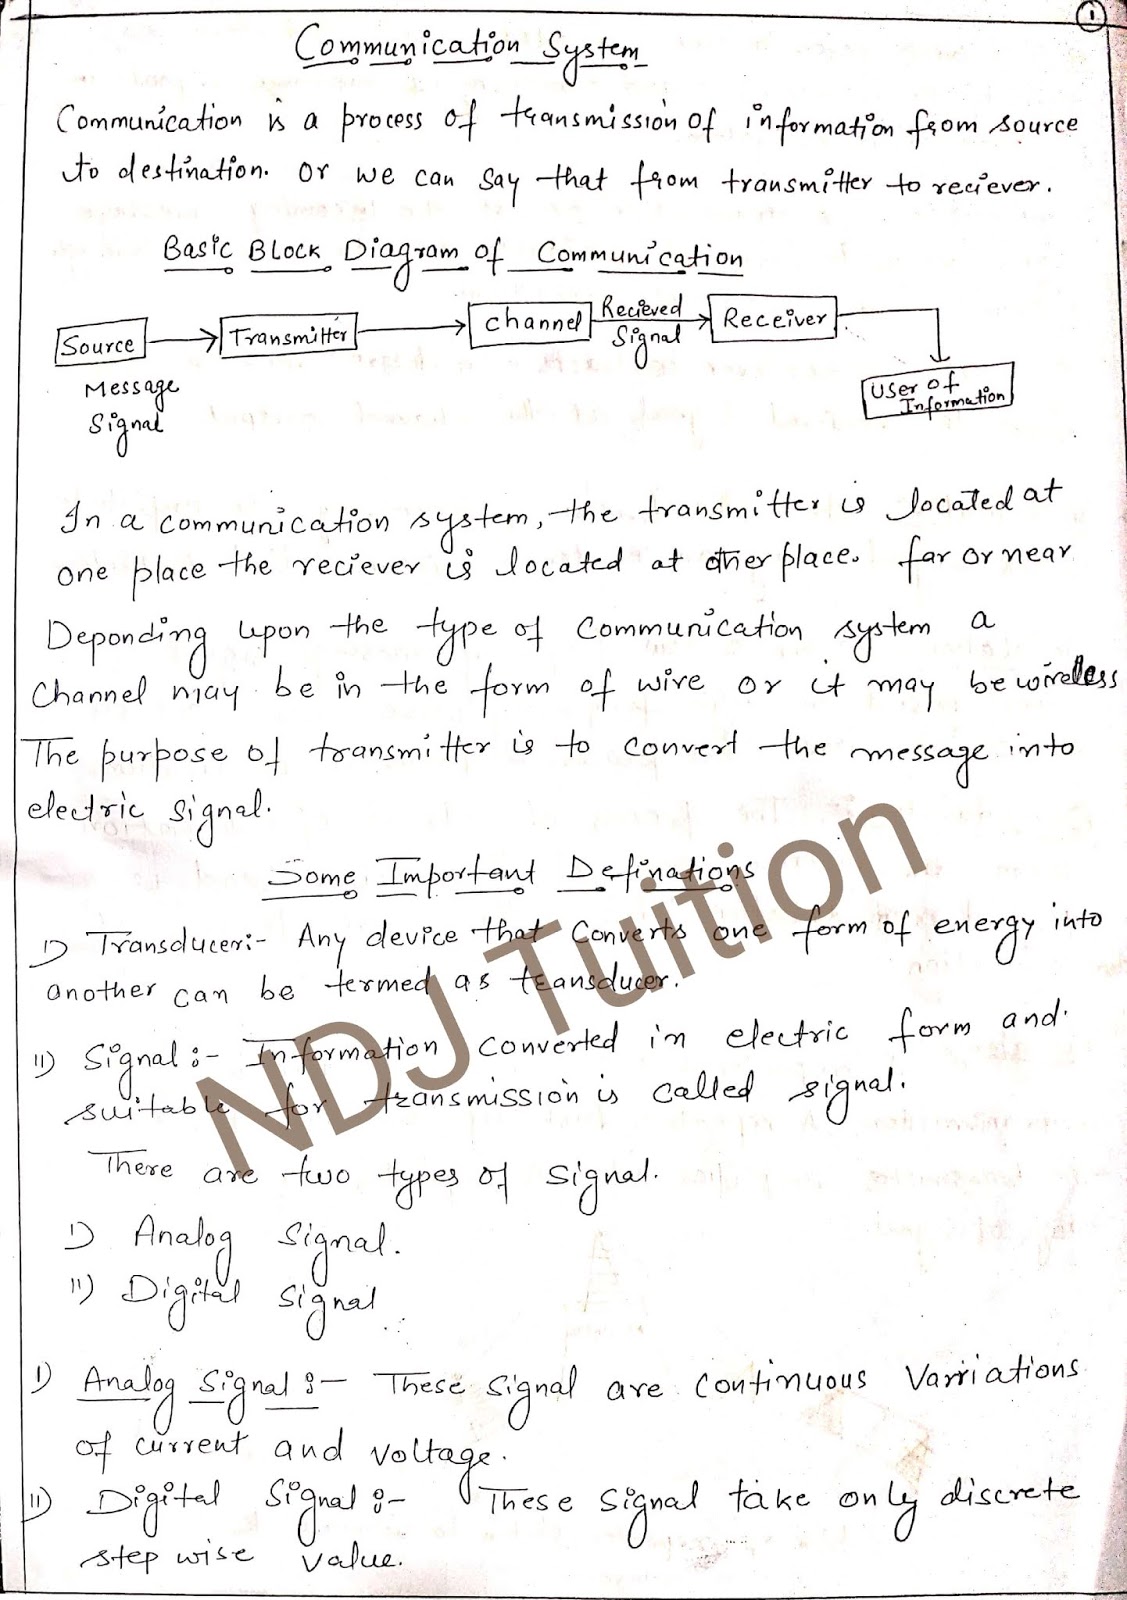 1
Communication System
Communication is a process of transmission of information from source
to destination. Or we can say that from transmitter to reciever.
Basic Block Diagram of Communication
Source
Transmitter
Channel
Recieved
Signal
Receiver
Message
Signal
User of
Information
In a communication system, the transmitter is located at
one place the reciever is located at other place. far or near
Deponding upon the type of communication system a
Channel may be in the form of wire or it may be wireless
The purpose of transmitter is to convert the message into
electric signal.
Some Important Definations
I) Transducer:- Any device that converts one form of energy into
another can be termed as transducer.
II) Signal:- Information converted in electric form and
suitable for transmission is called signal.
There are two types of signal.
I) Analog Signal.
II) Digital Signal
I) Analog Signal:- These signal are continuous Varriations
of current and voltage.
II) Digital Signal:- These signal take only discrete
step wise value.
NDJ Tuition